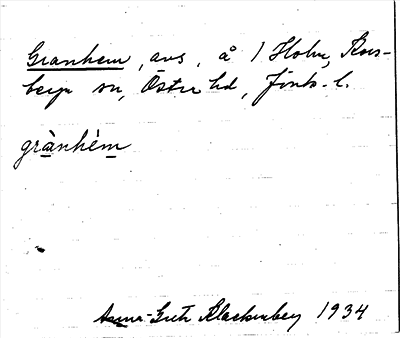 Granhem, avs. å 1 Holm, Kors-
berga sn, Östra hd, Jönk. l.
grànhém
Anna-Greta Klackenberg 1934